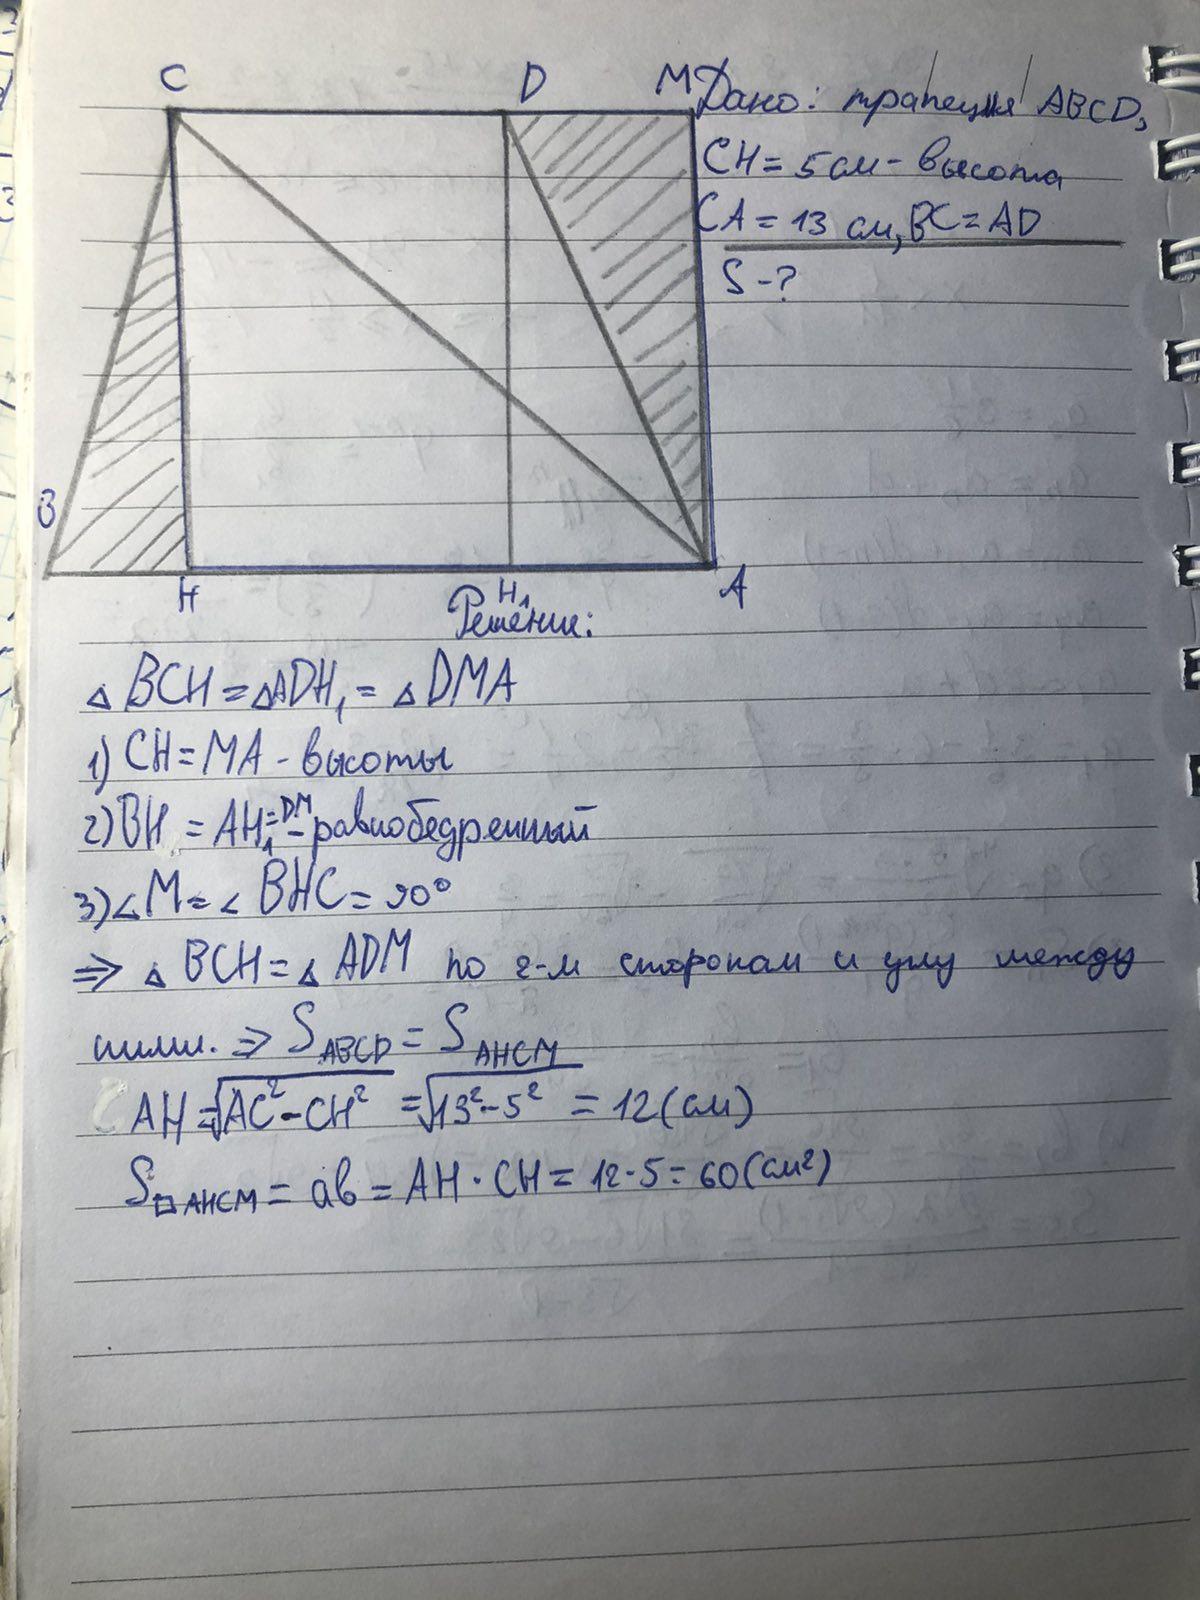 C D M
Дано: трапеция ABCD,
CH = 5 см - высота
CA = 13 см, BC = AD
S - ?
B
H H₁ A
Решение:
△ BCH = △ADH₁ = △ DMA
1) CH = MA - высоты
2) BH = AH₁ = DM - равнобедренный
3) ∠M = ∠ BHC = 90°
⇒ △ BCH = △ ADM по 2-м сторонам и углу между
ними. ⇒ S ABCD = S AHCM
AH = √AC² - CH² = √13² - 5² = 12 (см)
S▭AHCM = ab = AH · CH = 12 · 5 = 60 (см²)